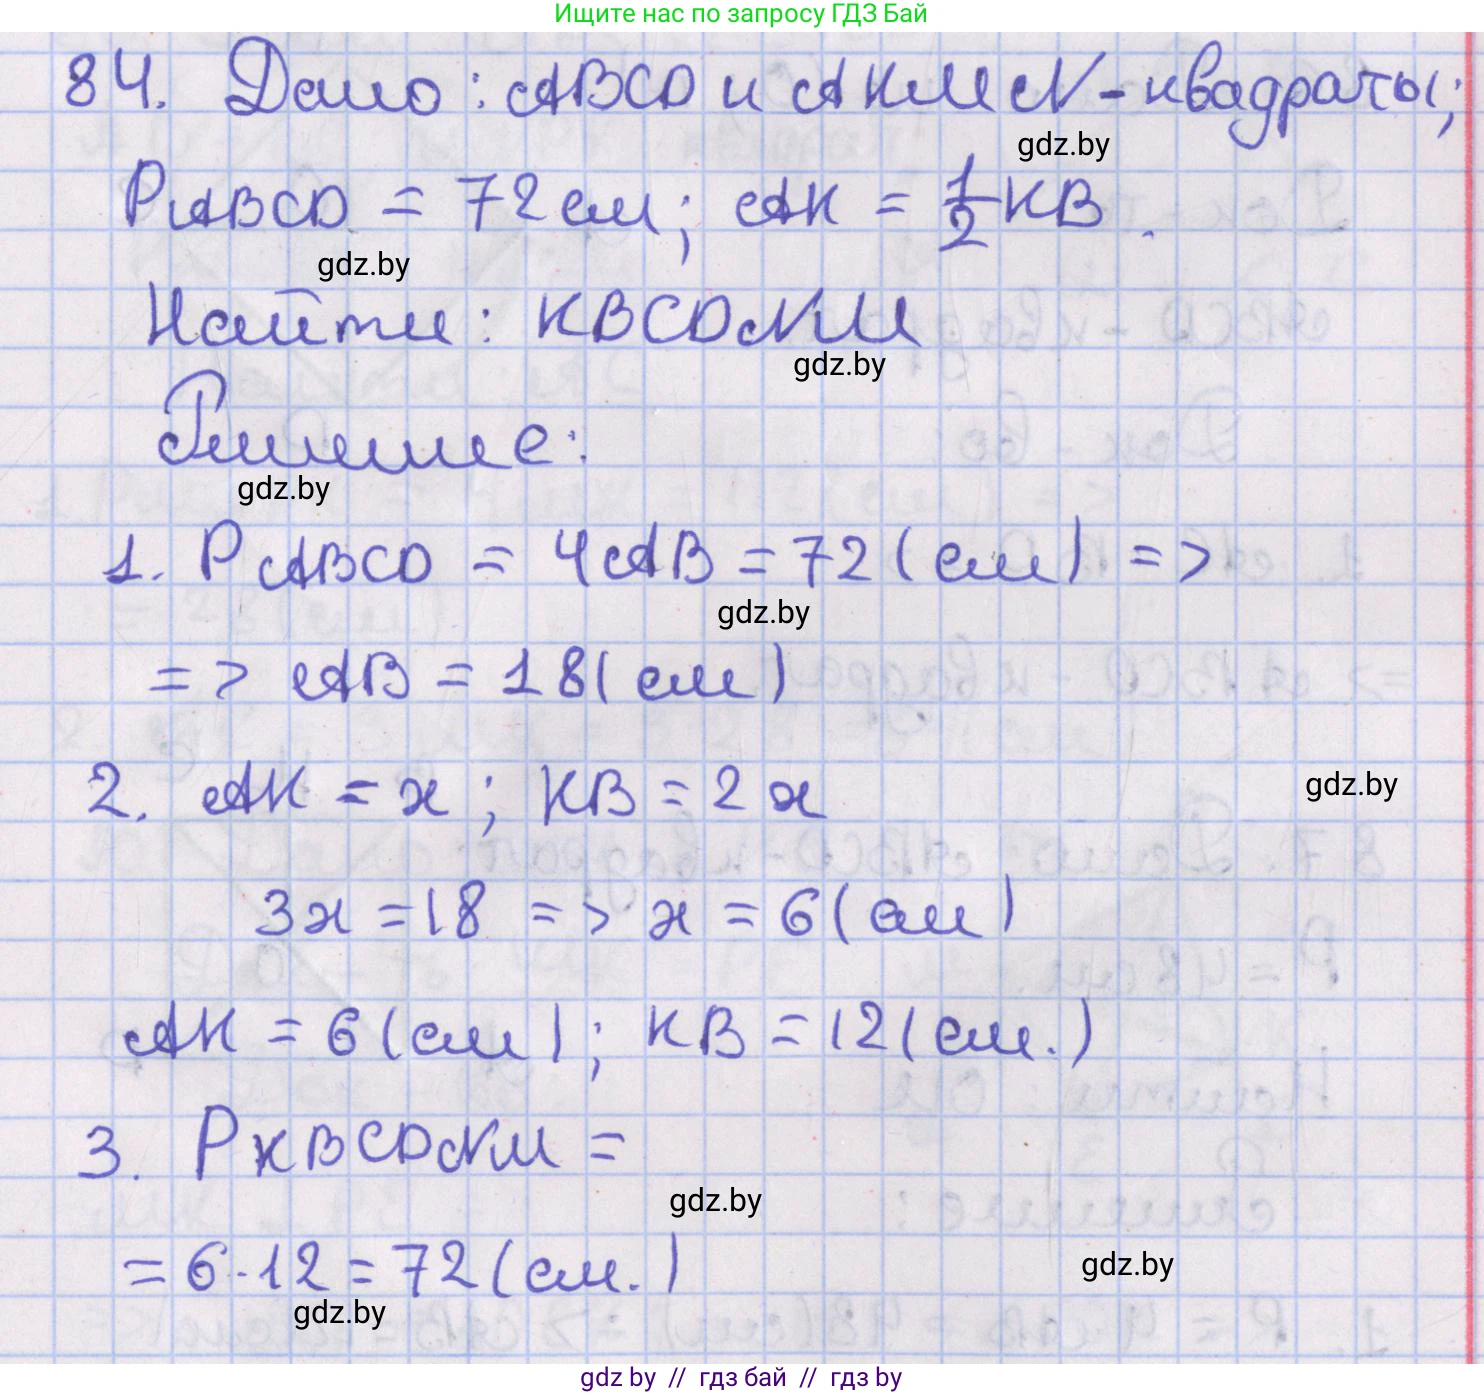 Ищите нас по запросу ГДЗ Бай
84. Дано: ABCD и AKMN - квадраты;
gdz.by
PABCD = 72 см; AK = 1/2 KB.
gdz.by
Найти: KBCDNM
gdz.by
Решение:
gdz.by
1. PABCD = 4AB = 72 (см) =>
gdz.by
=> AB = 18 (см)
2. AK = x; KB = 2x
gdz.by
3x = 18 => x = 6 (см)
AK = 6 (см); KB = 12 (см.)
3. PKBCDNM =
gdz.by
= 6·12 = 72 (см.)
gdz.by
gdz.by
gdz by // гдз бай // gdz by